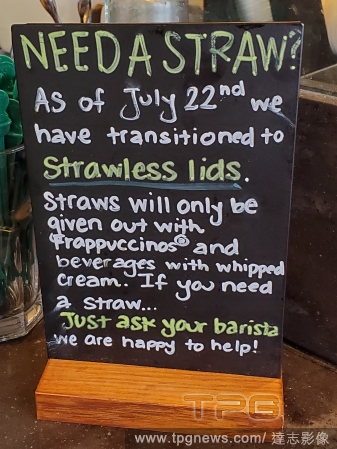 NEED A STRAW?
As of July 22nd we
have transitioned to
Strawless lids.
Straws will only be
given out with
Frappuccinos® and
beverages with whipped
cream. If you need
a straw...
Just ask your barista
we are happy to help!
TPG
www.tpgnews.com/ 達志影像